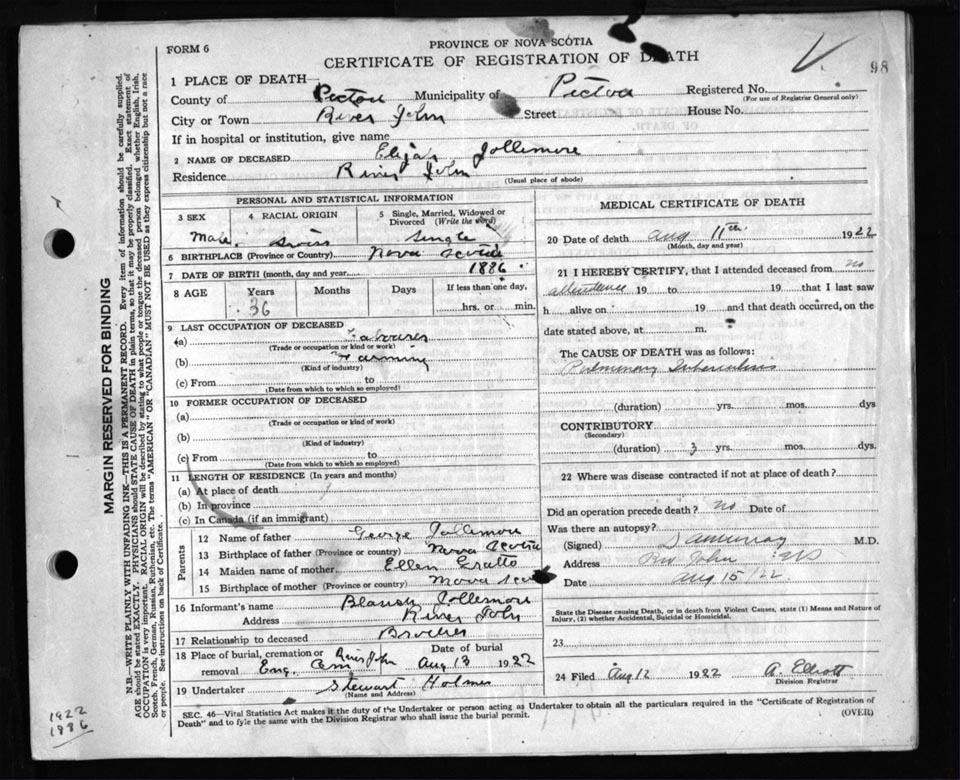 FORM 6
PROVINCE OF NOVA SCOTIA
CERTIFICATE OF REGISTRATION OF DEATH
98
1 PLACE OF DEATH—
County of Pictou Municipality of Pictou Registered No.
(For use of Registrar General only)
City or Town River John Street House No.
If in hospital or institution, give name
2 NAME OF DECEASED Elija Jollemore
Residence River John
(Usual place of abode)
PERSONAL AND STATISTICAL INFORMATION
3 SEX 4 RACIAL ORIGIN 5 Single, Married, Widowed or Divorced (Write the word)
Male Swiss Single
6 BIRTHPLACE (Province or Country) Nova Scotia
7 DATE OF BIRTH (month, day and year) 1886
8 AGE Years Months Days If less than one day,
36 hrs. or min.
9 LAST OCCUPATION OF DECEASED
(a) Labourer
(Trade or occupation or kind or work)
(b) Farming
(Kind of industry)
(c) From to
(Date from which to which so employed)
10 FORMER OCCUPATION OF DECEASED
(a)
(Trade or occupation or kind of work)
(b)
(Kind of industry)
(c) From to
(Date from which to which so employed)
11 LENGTH OF RESIDENCE (In years and months)
(a) At place of death
(b) In province
(c) In Canada (if an immigrant)
Parents
12 Name of father George Jollemore
13 Birthplace of father (Province or country) Nova Scotia
14 Maiden name of mother Ellen Gratto
15 Birthplace of mother (Province or country) Nova
16 Informant's name Jollemore
Address River John
17 Relationship to deceased Brother
18 Place of burial, cremation or removal Eng. Cem River John Date of burial Aug 13 1922
19 Undertaker Stewart Holmes
(Name and Address)
MEDICAL CERTIFICATE OF DEATH
20 Date of death Aug 11th 1922
(Month, day and year)
21 I HEREBY CERTIFY, that I attended deceased from no
attendence 19 to 19 that I last saw
h alive on 19 and that death occurred, on the
date stated above, at m.
The CAUSE OF DEATH was as follows:
Pulmonary Tuberculosis
(duration) yrs. mos. dys
CONTRIBUTORY
(Secondary)
(duration) 3 yrs. mos. dys.
22 Where was disease contracted if not at place of death?
Did an operation precede death? no Date of
Was there an autopsy?
(Signed) Murray M.D.
Address River John NS
Date Aug 15/22
State the Disease causing Death, or in death from Violent Causes, state (1) Means and Nature of
Injury, (2) whether Accidental, Suicidal or Homicidal.
23
24 Filed Aug 12 1922 A. Elliott
Division Registrar
SEC. 46—Vital Statistics Act makes it the duty of the Undertaker or person acting as Undertaker to obtain all the particulars required in the "Certificate of Registration of
Death" and to fyle the same with the Division Registrar who shall issue the burial permit.
(OVER)
MARGIN RESERVED FOR BINDING
N.B.—WRITE PLAINLY WITH UNFADING INK—THIS IS A PERMANENT RECORD. Every item of information should be carefully supplied.
AGE should be stated EXACTLY. PHYSICIANS should STATE CAUSE OF DEATH in plain terms, so that it may be properly classified. Exact statement of
OCCUPATION is very important. RACIAL ORIGIN will be described by stating to what people or tongue the deceased person belonged, whether English, Irish,
Scotch, French, German, Russian, Ruthenian, etc. The terms "AMERICAN" OR "CANADIAN" MUST NOT BE USED as they express citizenship but not a race
or people. See instructions on back of Certificate.
1922
1886